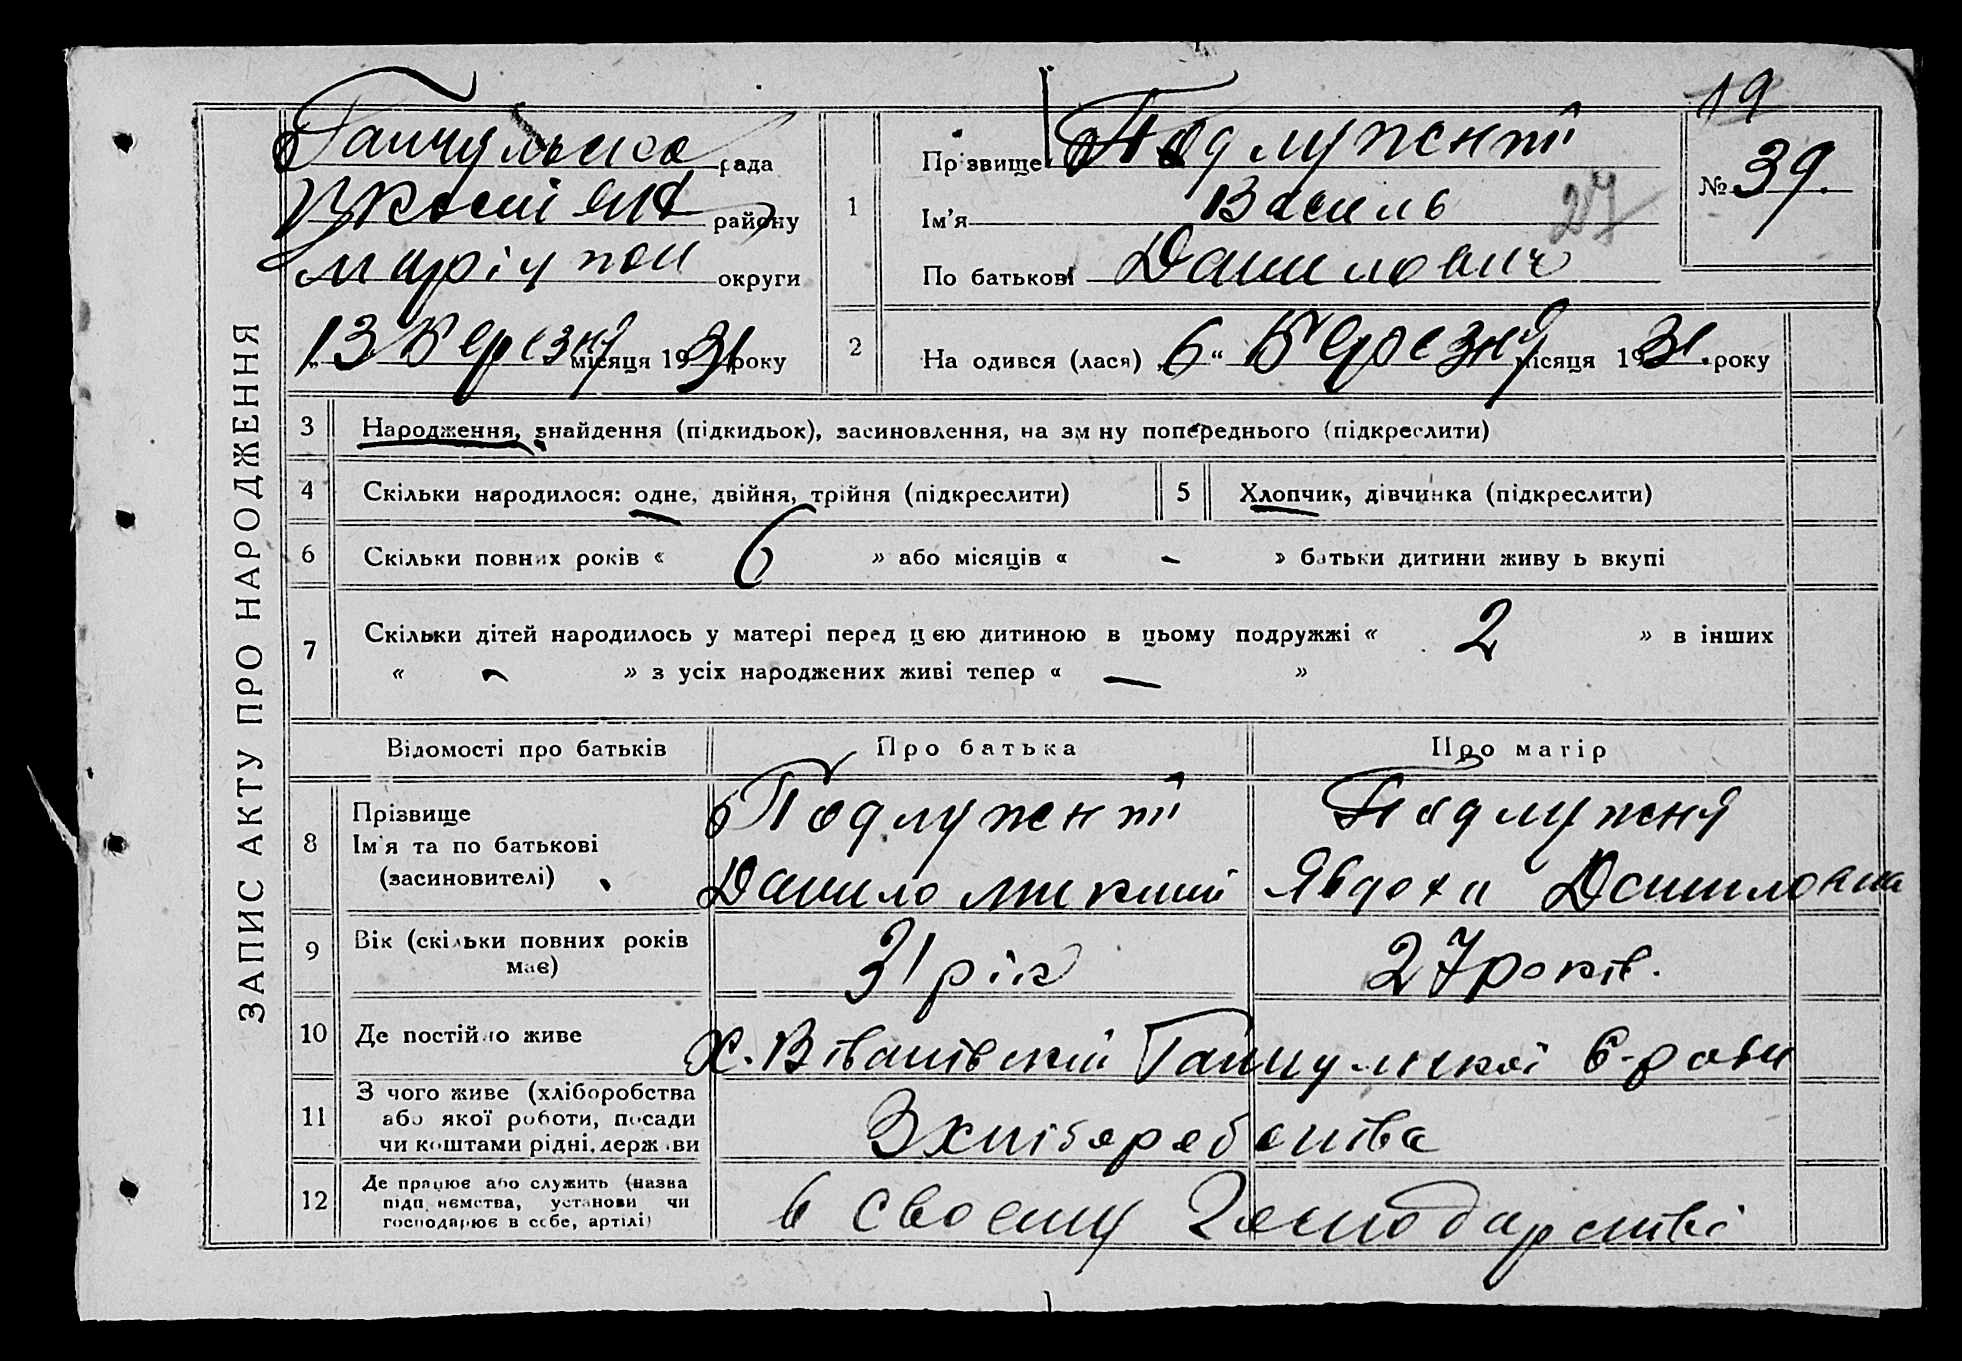 19
ЗАПИС АКТУ ПРО НАРОДЖЕННЯ
Гайчульська рада
району
округи
13 Березня місяця 1931 року
1
Прізвище Подлужний
Ім'я Василь
27
По батькові Данилович
№ 39.
2
На одився (лася) „6“ Березня місяця 1931. року
3 Народження, знайдення (підкидьок), засиновлення, на зм ну попереднього (підкреслити)
4 Скільки народилося: одне, двійня, трійня (підкреслити) 5 Хлопчик, дівчинка (підкреслити)
6 Скільки повних років « 6 » або місяців « - » батьки дитини живу ь вкупі
7 Скільки дітей народилось у матері перед цією дитиною в цьому подружжі « 2 » в інших
« - » з усіх народжених живі тепер « — »
Відомості про батьків Про батька Про матір
8 Прізвище
Ім'я та по батькові
(засиновителі)
Подлужний Подлужня
Данило Явдоха Даниловна
9 Вік (скільки повних років
має)
31 рік 27 років.
10 Де постійно живе Х. Гайчульської с-ради
11 З чого живе (хліборобства
або якої роботи, посади
чи коштами рідні, держ ви
З хліборобства
12 Де працює або служить (назва
підп. немства, установи чи
господарює в себе, артілі)
в своему господарстві